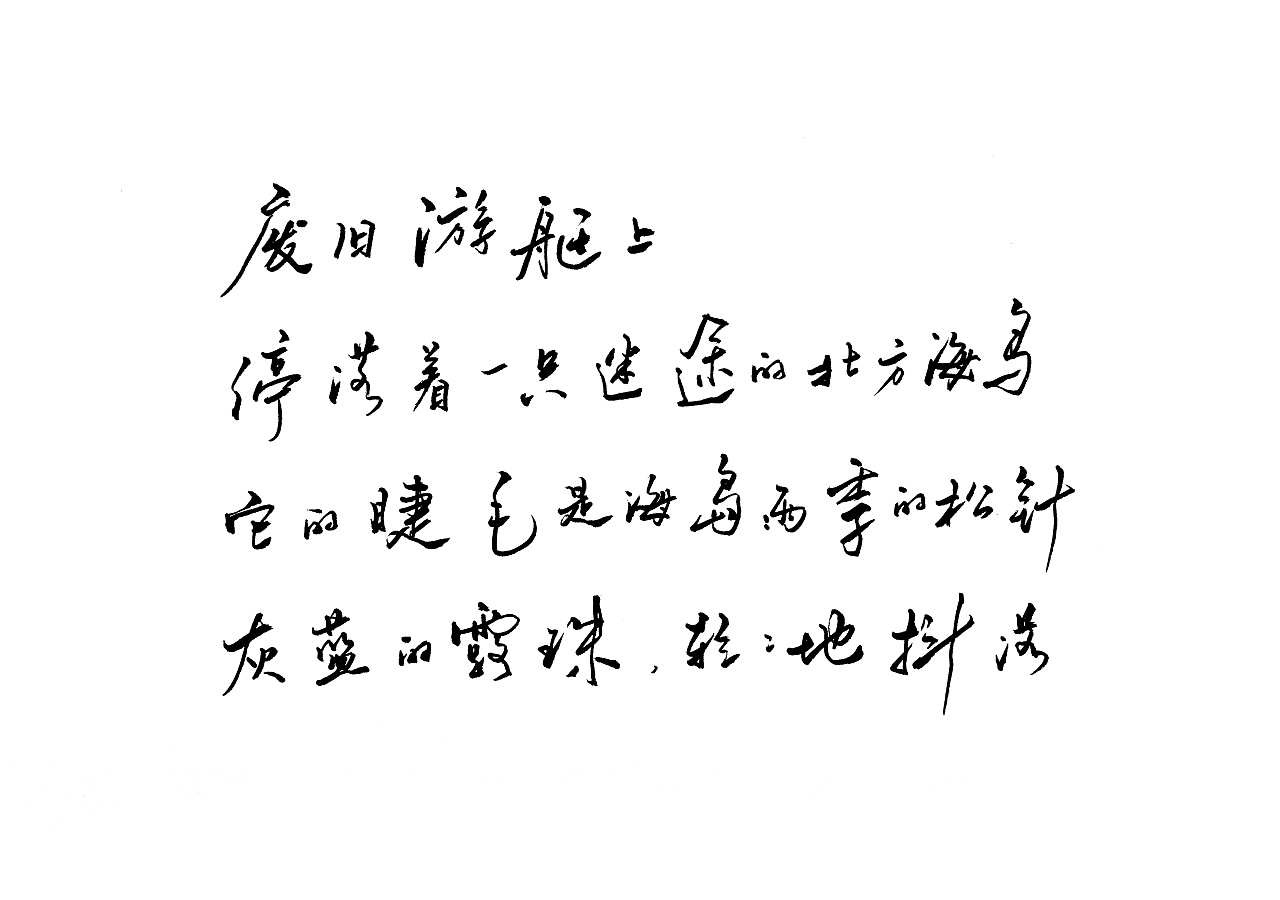 废旧游艇上
停落着一只迷途的北方海鸟
它的睫毛是海岛雨季的松针
灰蓝的露珠，轻轻地抖落